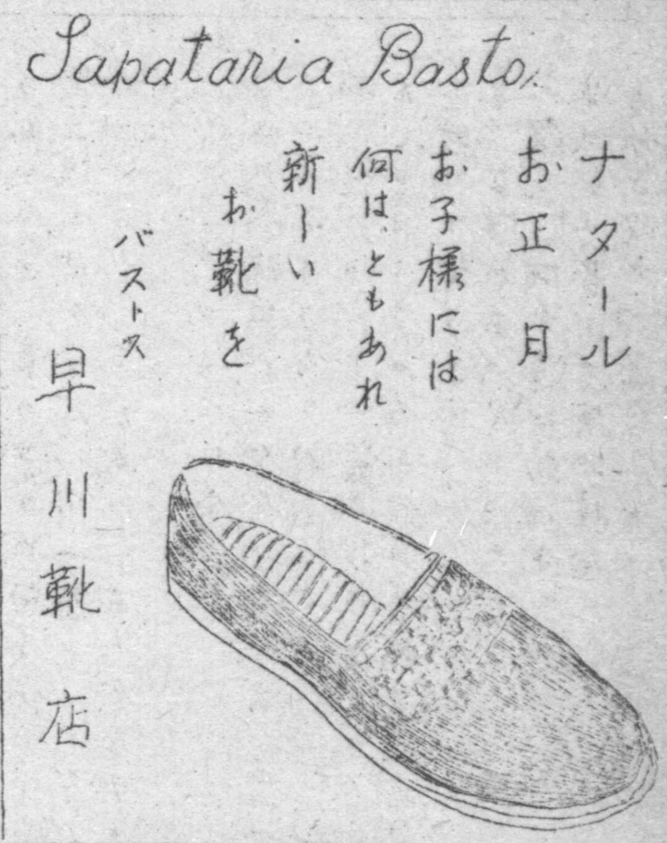 Sapataria Basto.
ナタール
お正月
お子様には
何は、ともあれ
新しい
お靴を
バストス
早川靴店